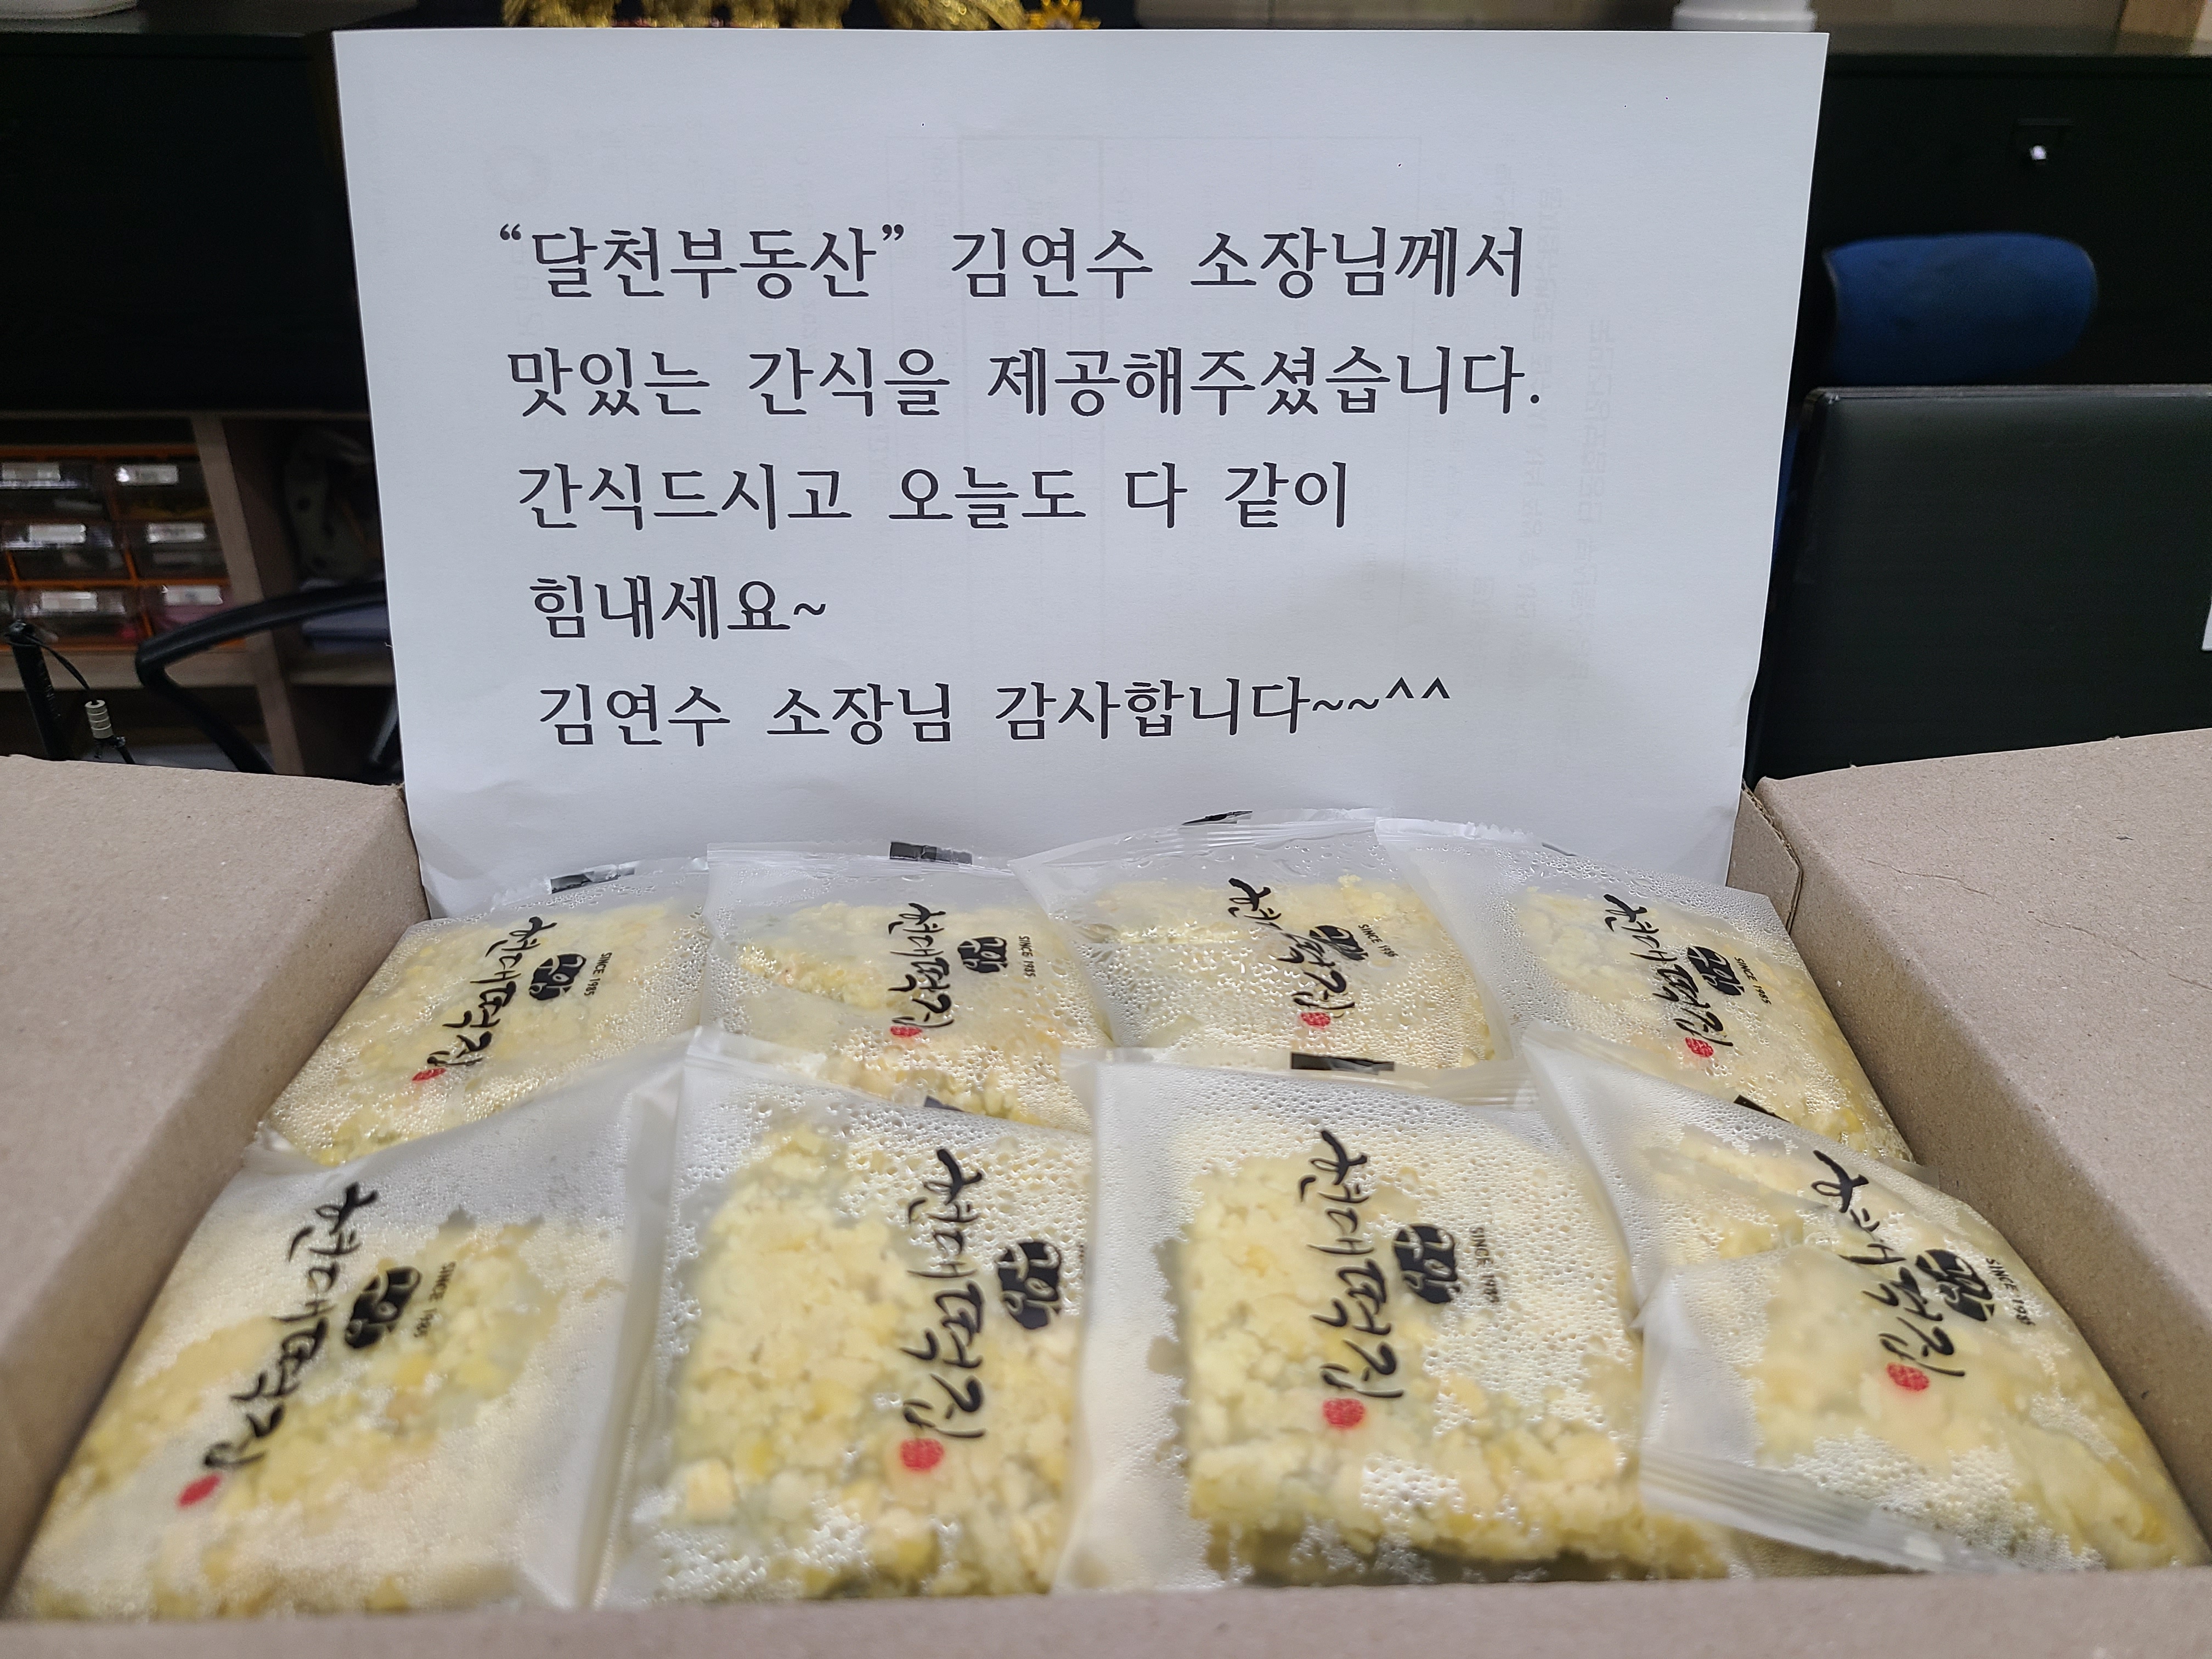 “달천부동산” 김연수 소장님께서
맛있는 간식을 제공해주셨습니다.
간식드시고 오늘도 다 같이
힘내세요~
김연수 소장님 감사합니다~~^^
SINCE 1985
SINCE 1985
SINCE 198
SINCE 1985
SINCE 1985
SINCE 1985
SINCE 1985